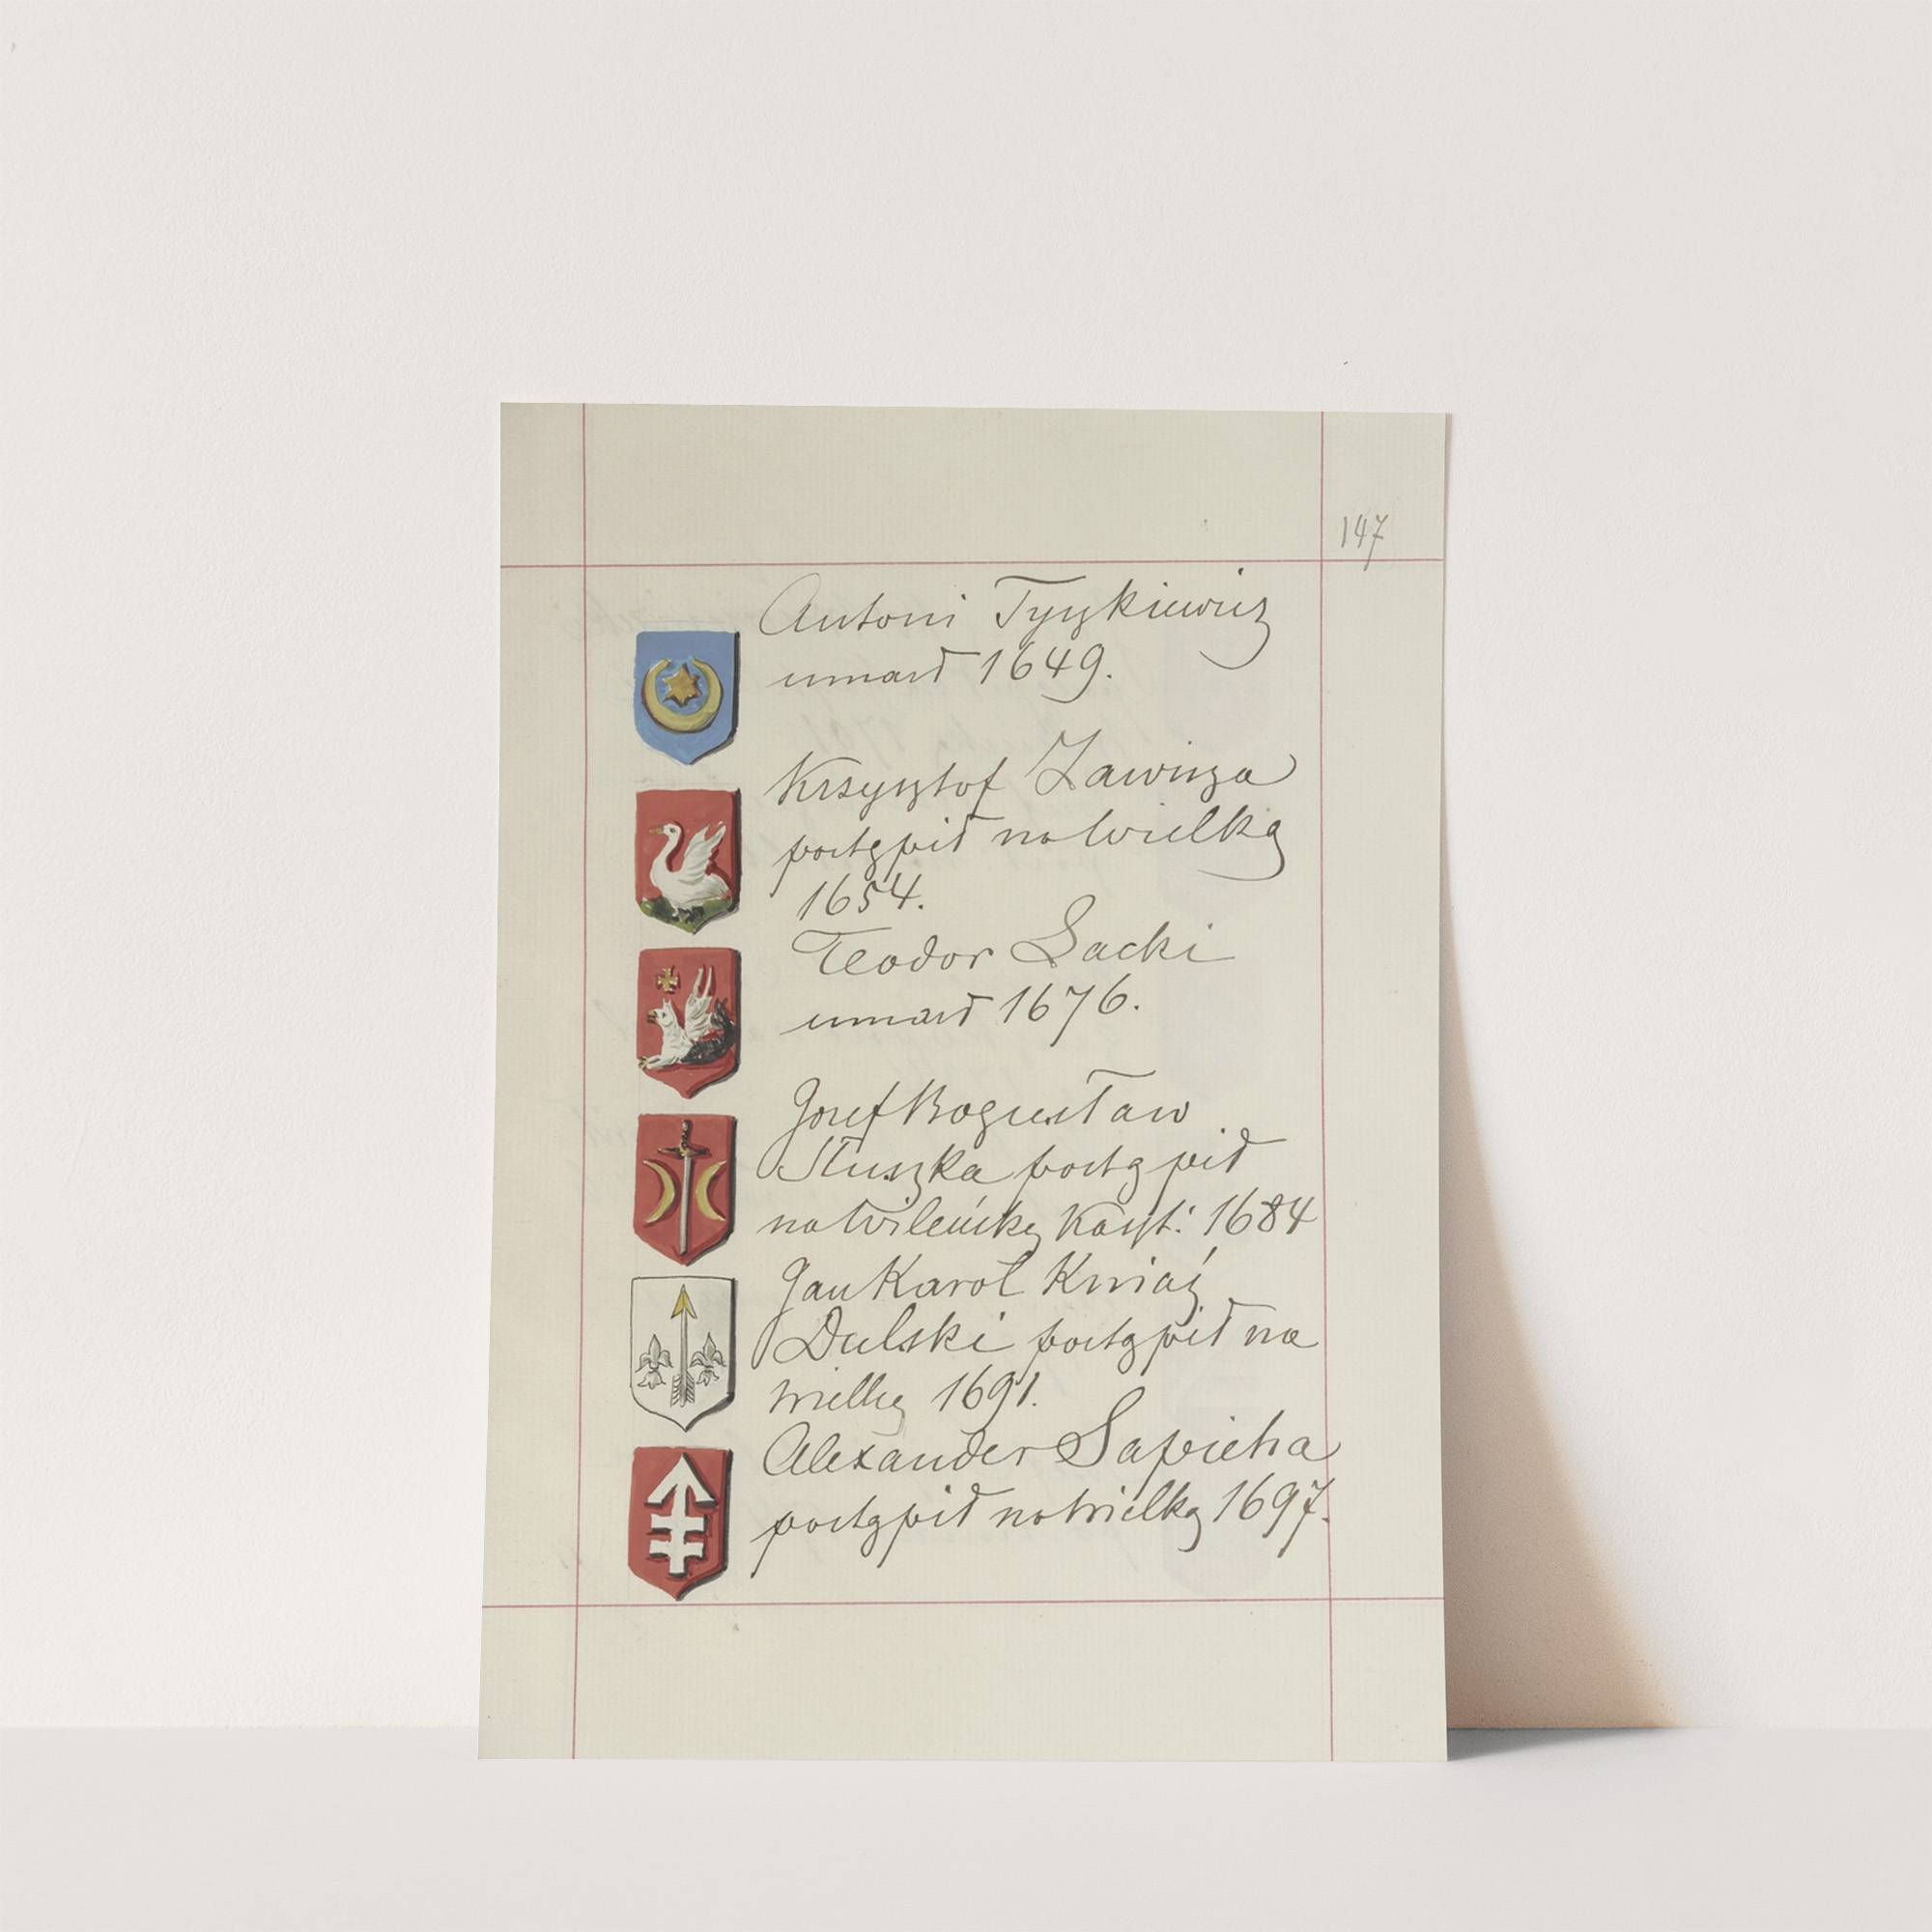 147
Antoni Tyszkiewicz
umarł 1649.
Krzysztof Zawisza
postąpił na Wielką
1654.
Teodor Lacki
umarł 1676.
Józef Bogusław
Słuszka postąpił
na Wileńską Kaszt: 1684
Jan Karol Kniaź
Dolski postąpił na
wielką 1691.
Alexander Sapieha
postąpił na wielką 1697.